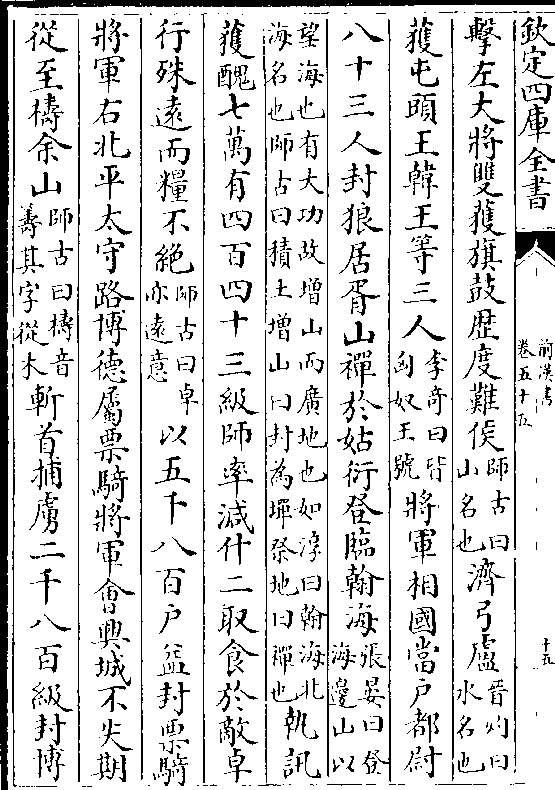 欽定四庫全書
前漢書
卷五十五
十五
擊左大將雙獲旗鼓歴度難侯師古曰山名也濟弓盧晉灼曰水名也
獲屯頭王韓王等三人李奇曰皆匈奴王號將軍相國當户都尉
八十三人封狼居胥山禪於姑衍登臨翰海張晏曰登海邊山以
望海也有大功故增山而廣地也如淳曰翰海北海名也師古曰積土增山曰封為墠祭地曰禪也執訊
獲醜七萬有四百四十三級師率減什二取食於敵卓
行殊遠而糧不絶師古曰卓亦遠意以五千八百户益封票騎
將軍右北平太守路博德屬票騎將軍㑹興城不失期
從至檮余山師古曰檮音籌其字從木斬首捕虜二千八百級封博